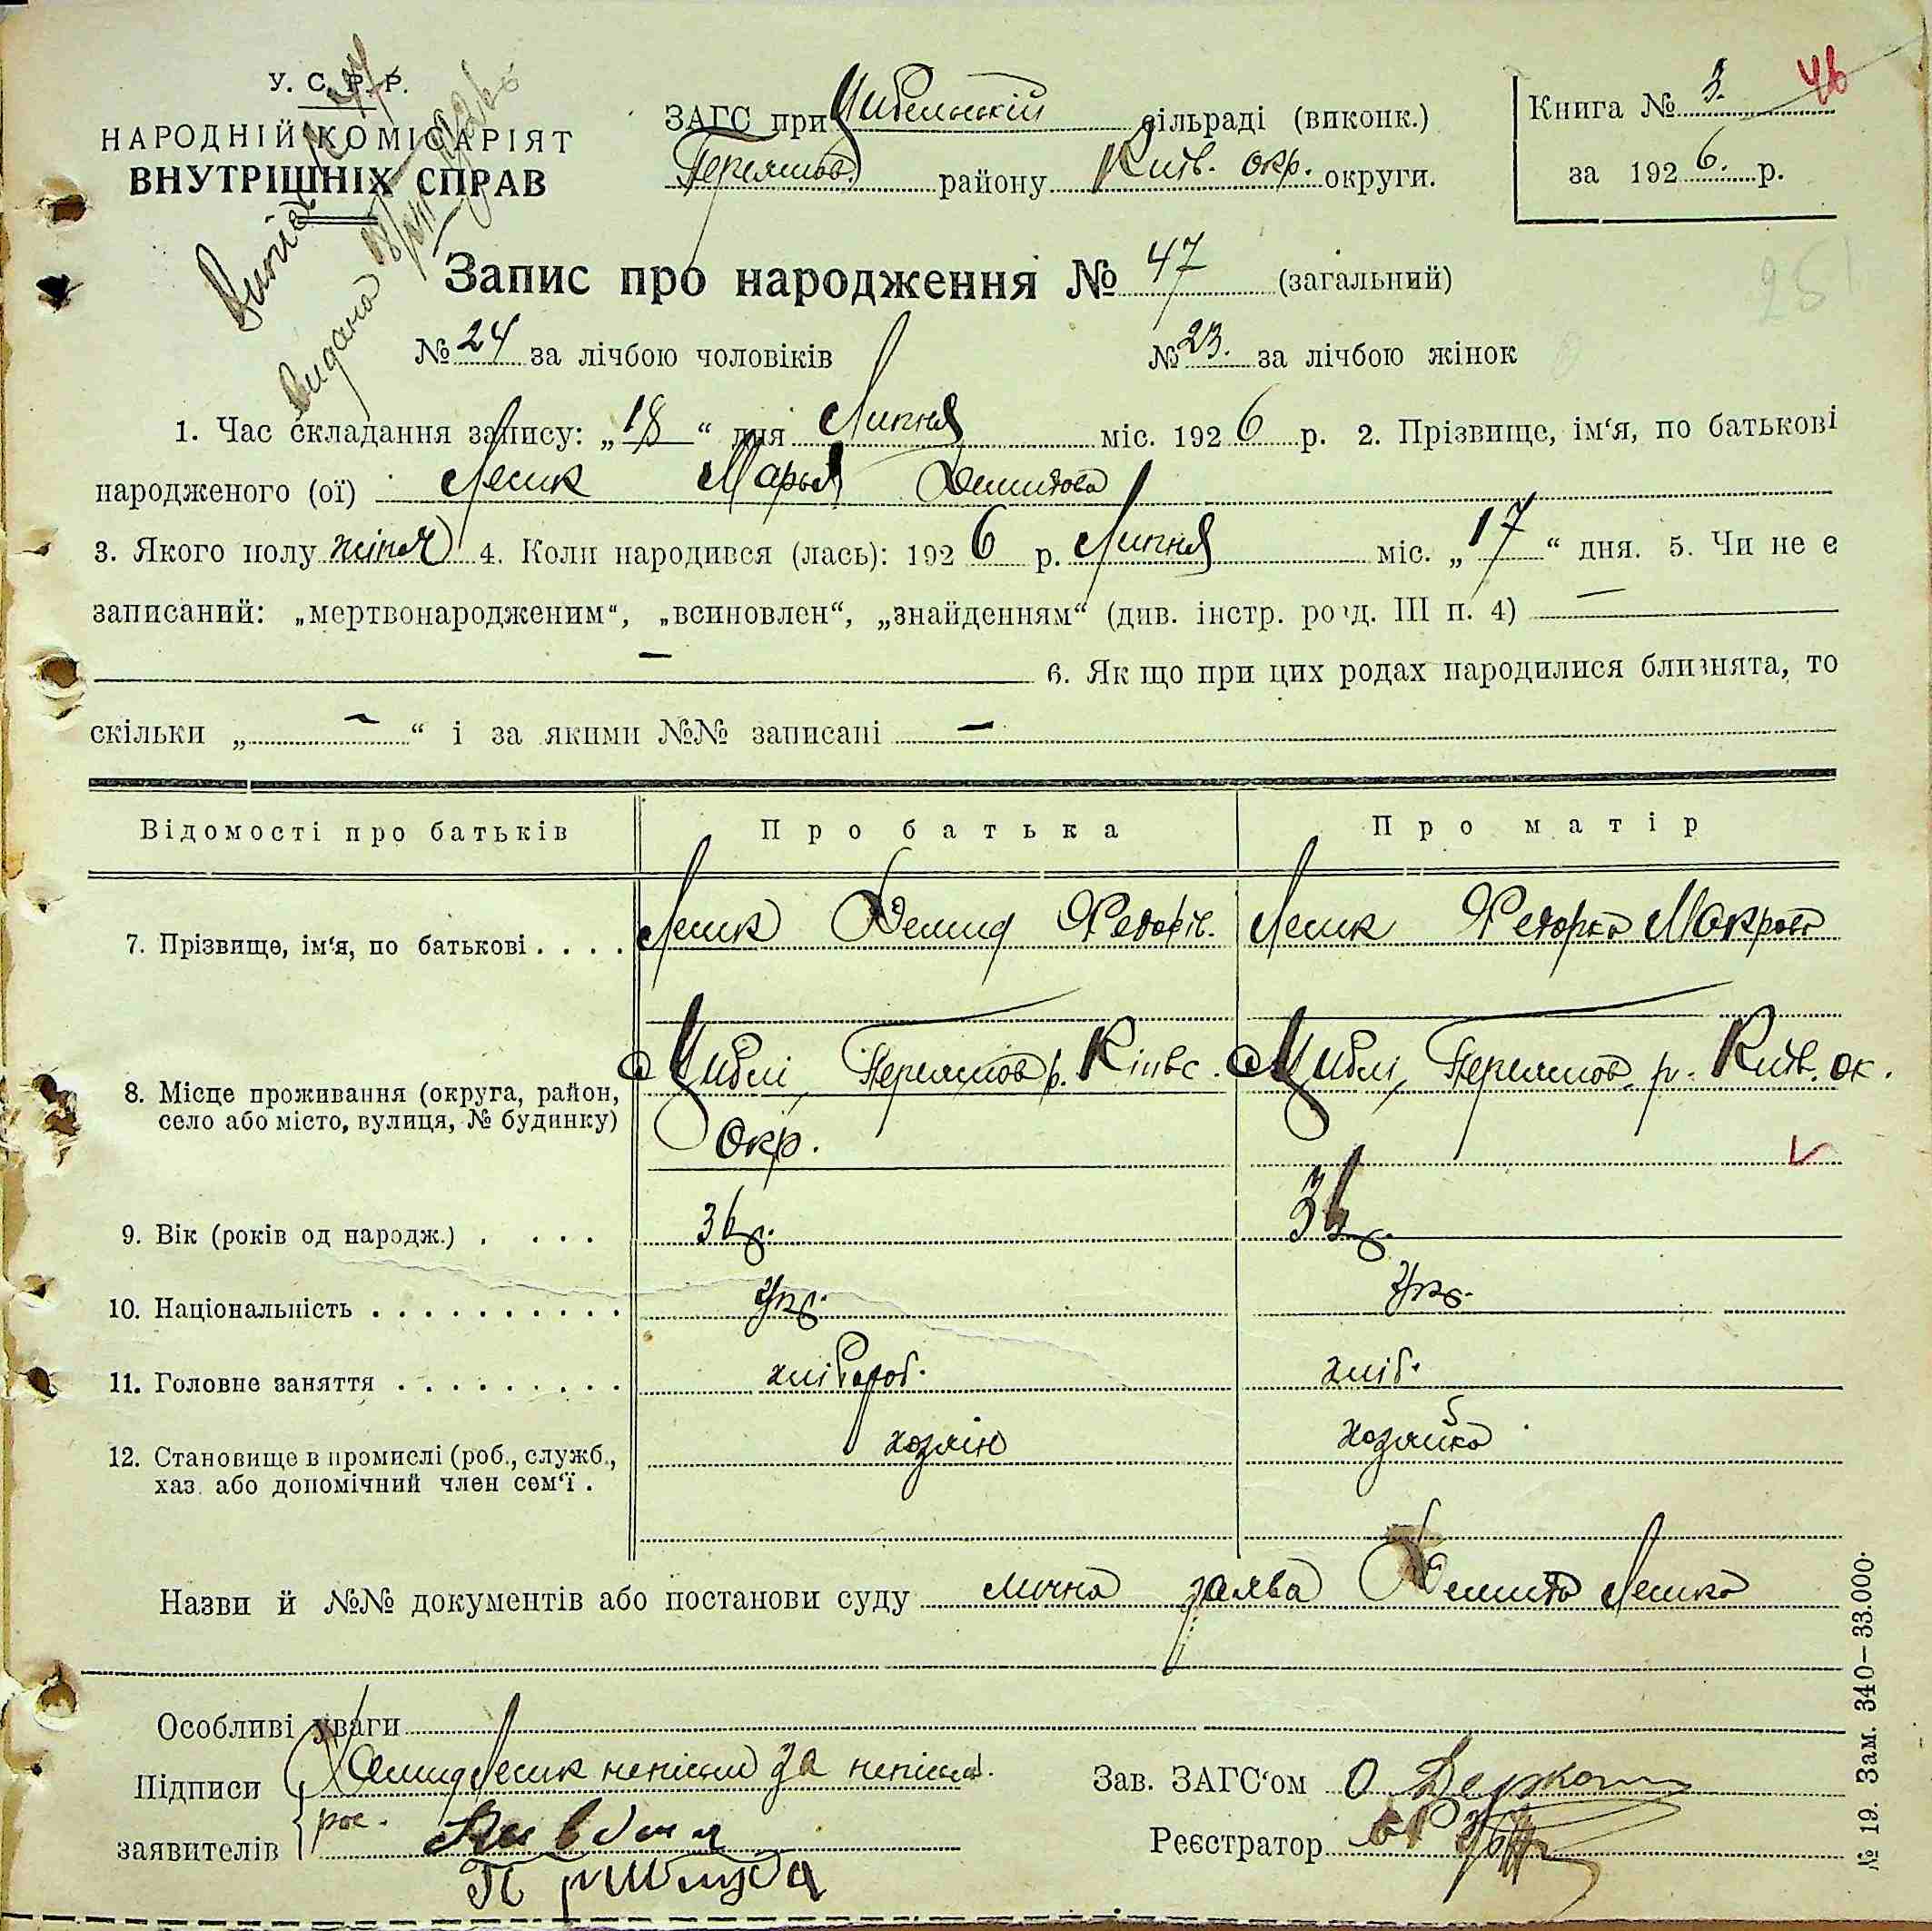 У. С. Р. Р.
НАРОДНІЙ КОМІСАРІЯТ
ВНУТРІШНІХ СПРАВ
ЗАГС при Цибельській сільраді (виконк.)
Переяслов. району Київ. окр. округи.
Книга № 3. 46
за 1926. р.
Запис про народження № 47 (загальний)
№ 24 за лічбою чоловіків № 23. за лічбою жінок
1. Час складання запису: „18“ дня Липня міс. 1926 р. 2. Прізвище, ім‘я, по батькові
народженого (ої) Лесик Марья Демидова
3. Якого полу жіноч 4. Коли народився (лась): 1926 р. Липня міс. „17“ дня. 5. Чи не є
записаний: „мертвонародженим“, „всиновлен“, „знайденням“ (див. інстр. розд. III п. 4) —
— 6. Як що при цих родах народилися близнята, то
скільки „—“ і за якими №№ записані —
Відомості про батьків Про батька Про матір
7. Прізвище, ім‘я, по батькові . . . . Лесик Демид Федорів. Лесик Федорка Макрова
8. Місце проживання (округа, район,
село або місто, вулиця, № будинку)
с Циблі Переяслов р. Київс.
Окр.
с Циблі, Переяслов. р. Київ. ок.
9. Вік (років од народж.) . . . . 36 р. 36 р.
10. Національність . . . . . . . . . . укр. укр.
11. Головне заняття . . . . . . . . . хлібороб. хліб.
12. Становище в промислі (роб., служб.,
хаз. або допомічний член сем‘ї .
хозяін хозяйка
Назви й №№ документів або постанови суду лична заява Демида Лесика
Особливі уваги
Підписи Демид Лесик неписм за неписм.
заявителів рос.
Зав. ЗАГС‘ом О
Реєстратор
№ 19. Зам. 340—33.000.